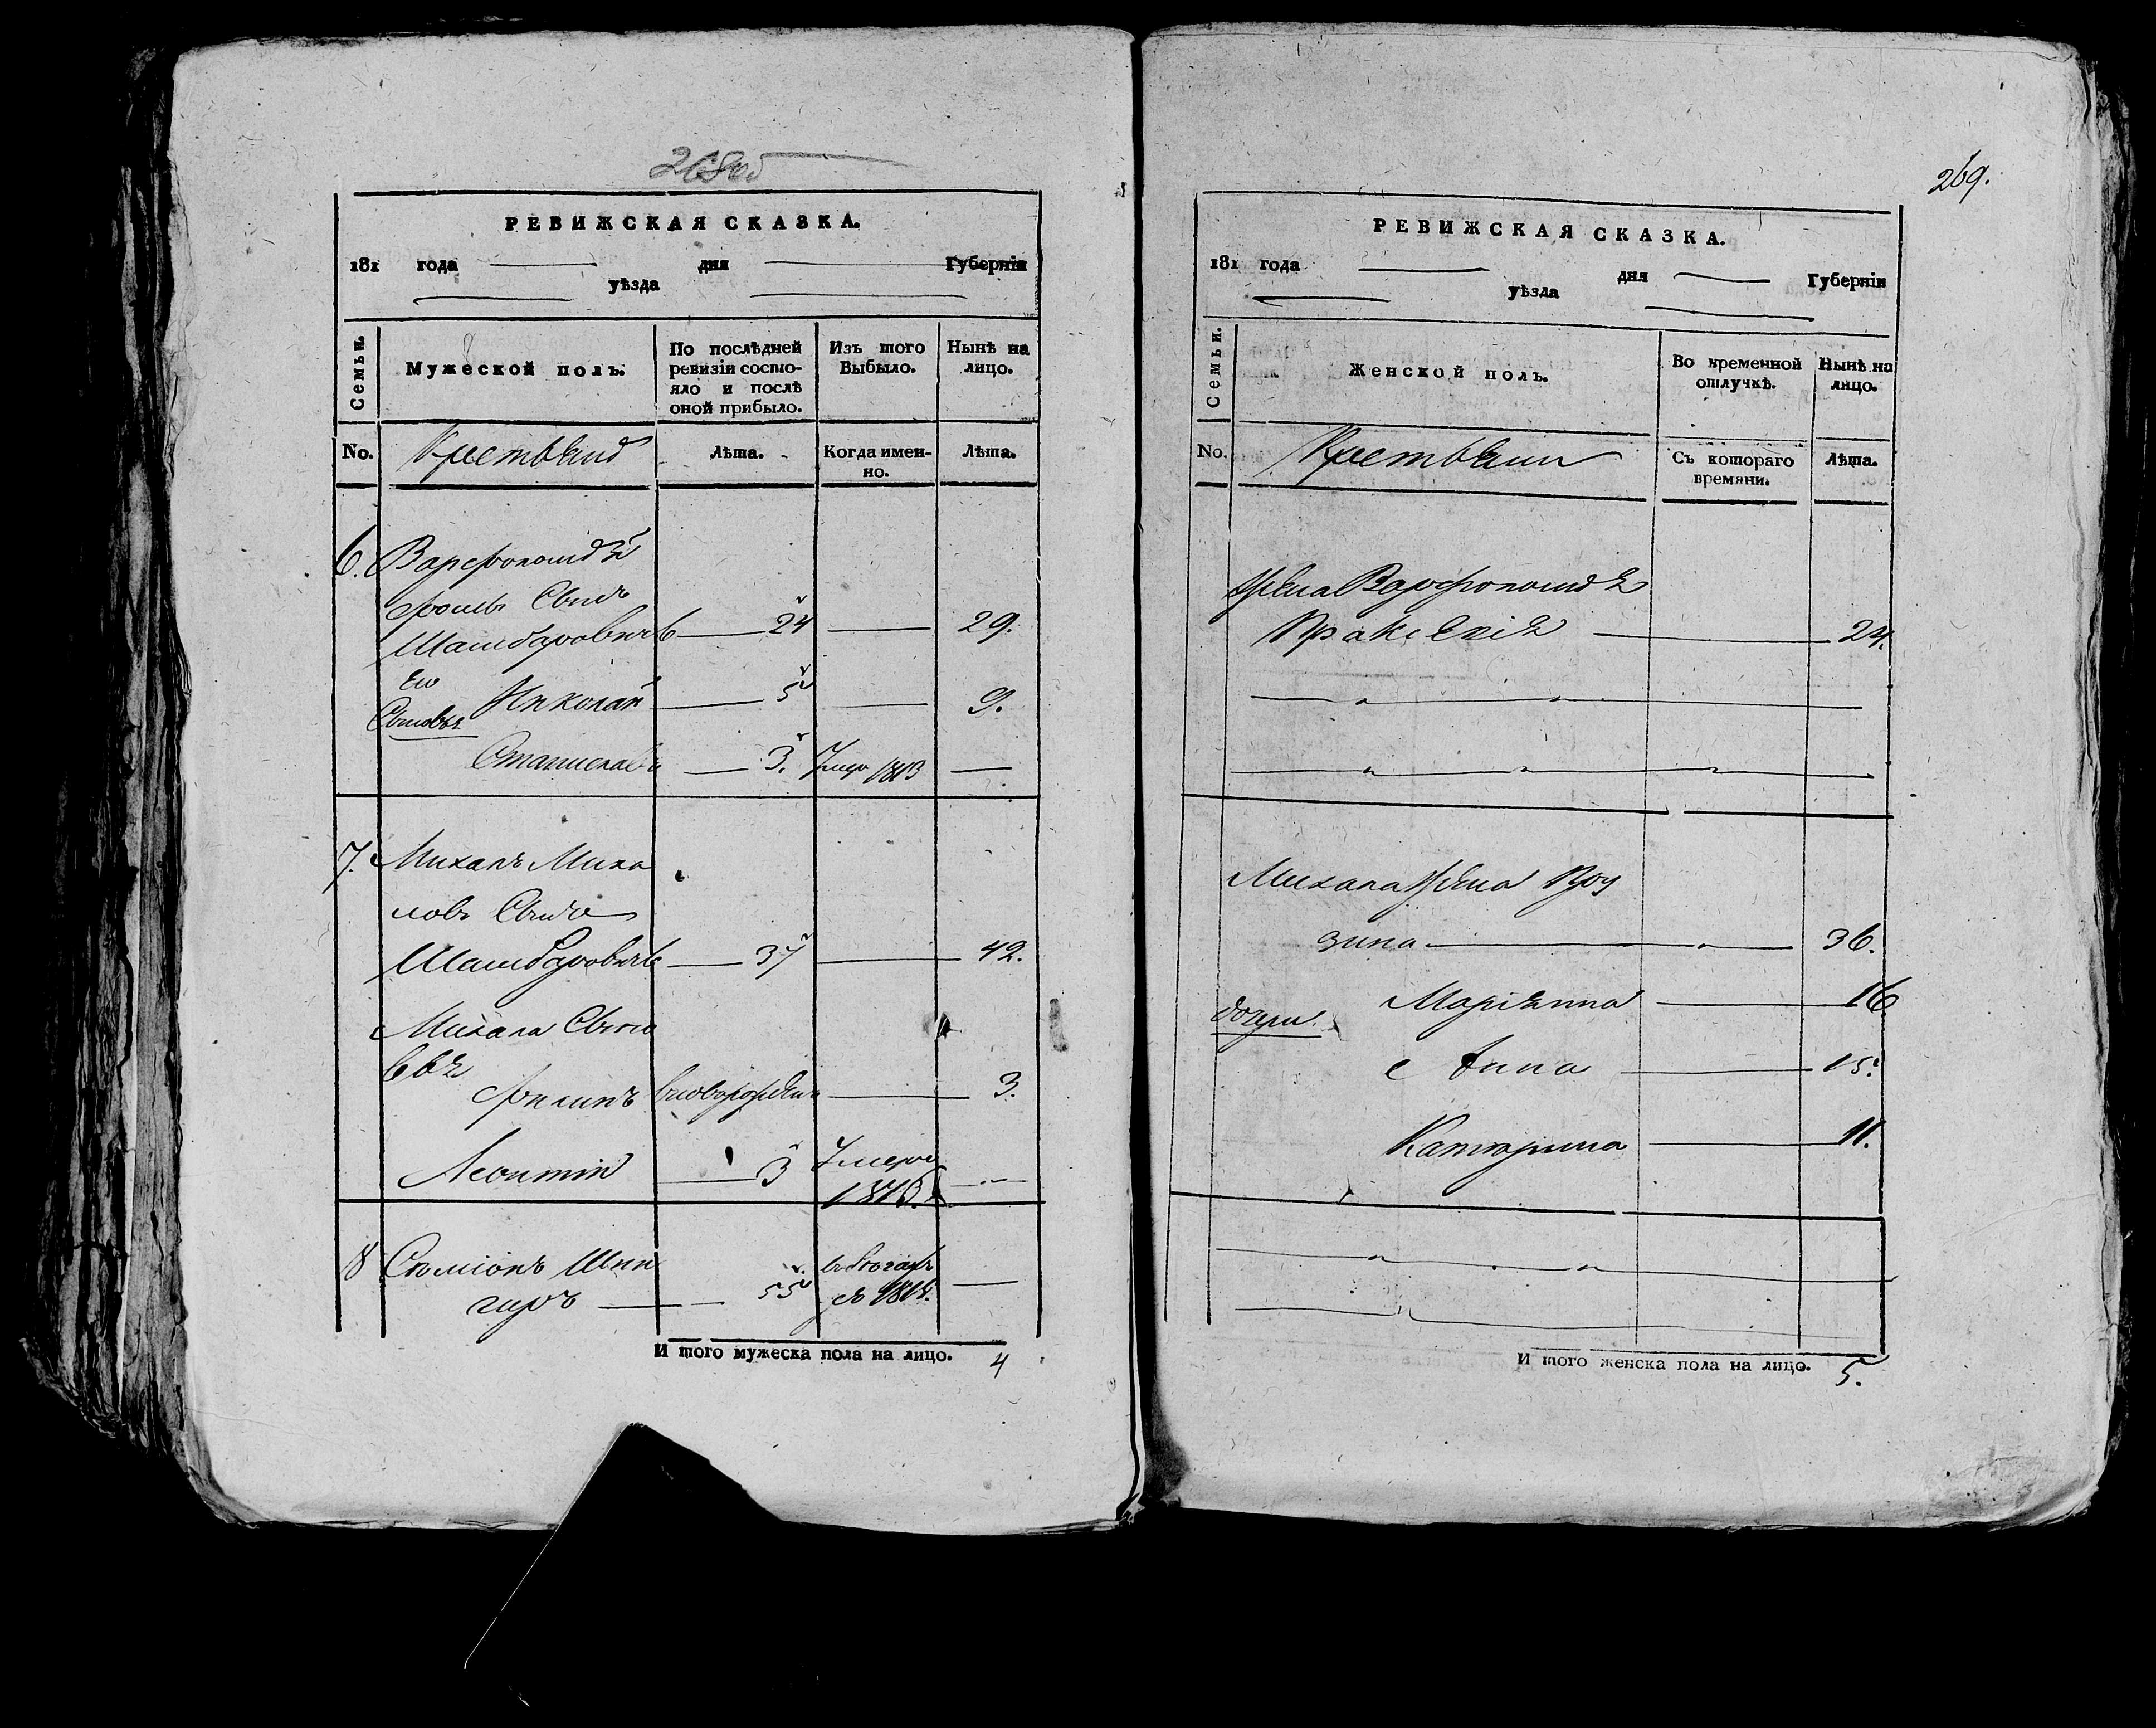 268об
РЕВИЖСКАЯ СКАЗКА.
181 года дня Губернія
уѣзда
Семьи.
Мужеской полъ.
По послѣдней ревизіи состо-
яло и послѣ оной прибыло.
Изъ того Выбыло.
Нынѣ на лицо.
No.
Крестьяне
Лѣта.
Когда имен-
но.
Лѣта.
6. Варфоломей
Сынъ
24 29.
Его Сыновья
Николай 5 9.
Станиславъ 3. Умер 1813
7. Михалъ Миха
ловъ Сынъ
37 42.
Михала Сыно
вья
Филипъ новорожден 3.
Леонтій 3 Умеръ
1813.
8 Сѣміонъ
55
И того мужеска пола на лицо. 4
269.
РЕВИЖСКАЯ СКАЗКА.
181 года дня Губерніи
уѣзда
Семьи.
Женской полъ.
Во временной отлучкѣ.
Нынѣ на лицо.
No.
Крестьяни
Съ котораго времяни.
Лѣта.
Жена Варфоломея
24.
Михала Жена Роу
зина 36.
дочери Маріянна 16
Анна 15.
Катерина 11.
И того женска пола на лицо. 5.